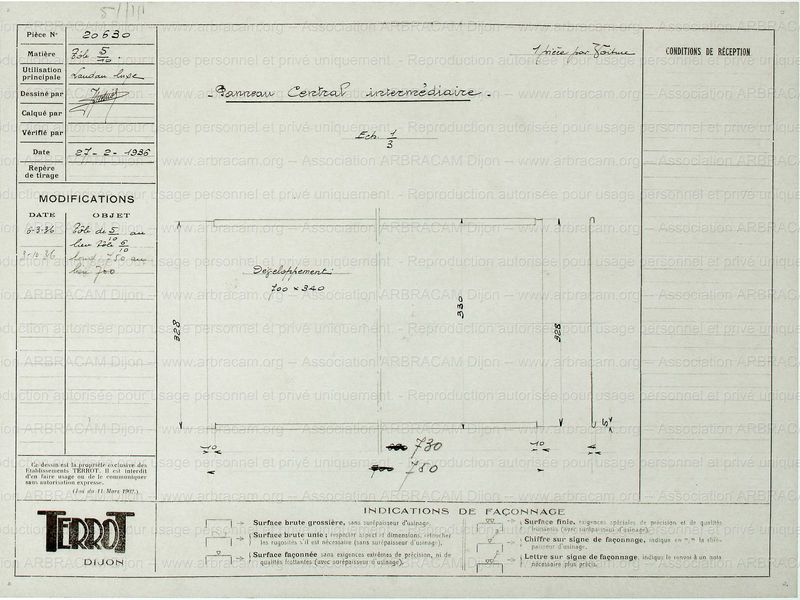 Pièce N° 20630
Matière Tôle 5/10.
Utilisation principale Landau luxe
Dessiné par
Calqué par
Vérifié par
Date 27-2-1936
Repère de tirage
MODIFICATIONS
DATE OBJET
6-3-36 Tôle de 5/10 au
lieu Tôle 6/10
3-10-36 750 au
lieu 700
Ce dessin est la propriété exclusive des
Etablissements TERROT. Il est interdit
d'en faire usage ou de le communiquer
sans autorisation expresse.
(Loi du 11 Mars 1902.)
TERROT
DIJON
1 pièce par Voiture
CONDITIONS DE RÉCEPTION
- Panneau Central intermédiaire -
Ech. 1/3
Développement:
700 × 340
328
330
328
5
10
10
4
730
750
INDICATIONS DE FAÇONNAGE
Surface brute grossière, sans surépaisseur d'usinage.
Surface brute unie; respecter aspect et dimensions, retoucher
les rugosités s'il est nécessaire (sans surépaisseur d'usinage).
Surface façonnée sans exigences extrêmes de précision, ni de
qualités frottantes (avec surépaisseur d'usinage).
Surface finie, exigences spéciales de précision et de qualités
frottantes (avec surépaisseur d'usinage).
Chiffre sur signe de façonnage, indique en m/m la surépaisseur d'usinage.
Lettre sur signe de façonnage, indique le renvoi à un nota
nécessaire plus précis.
www.arbracam.org – Association ARBRACAM Dijon – Reproduction autorisée pour usage personnel et privé uniquement.